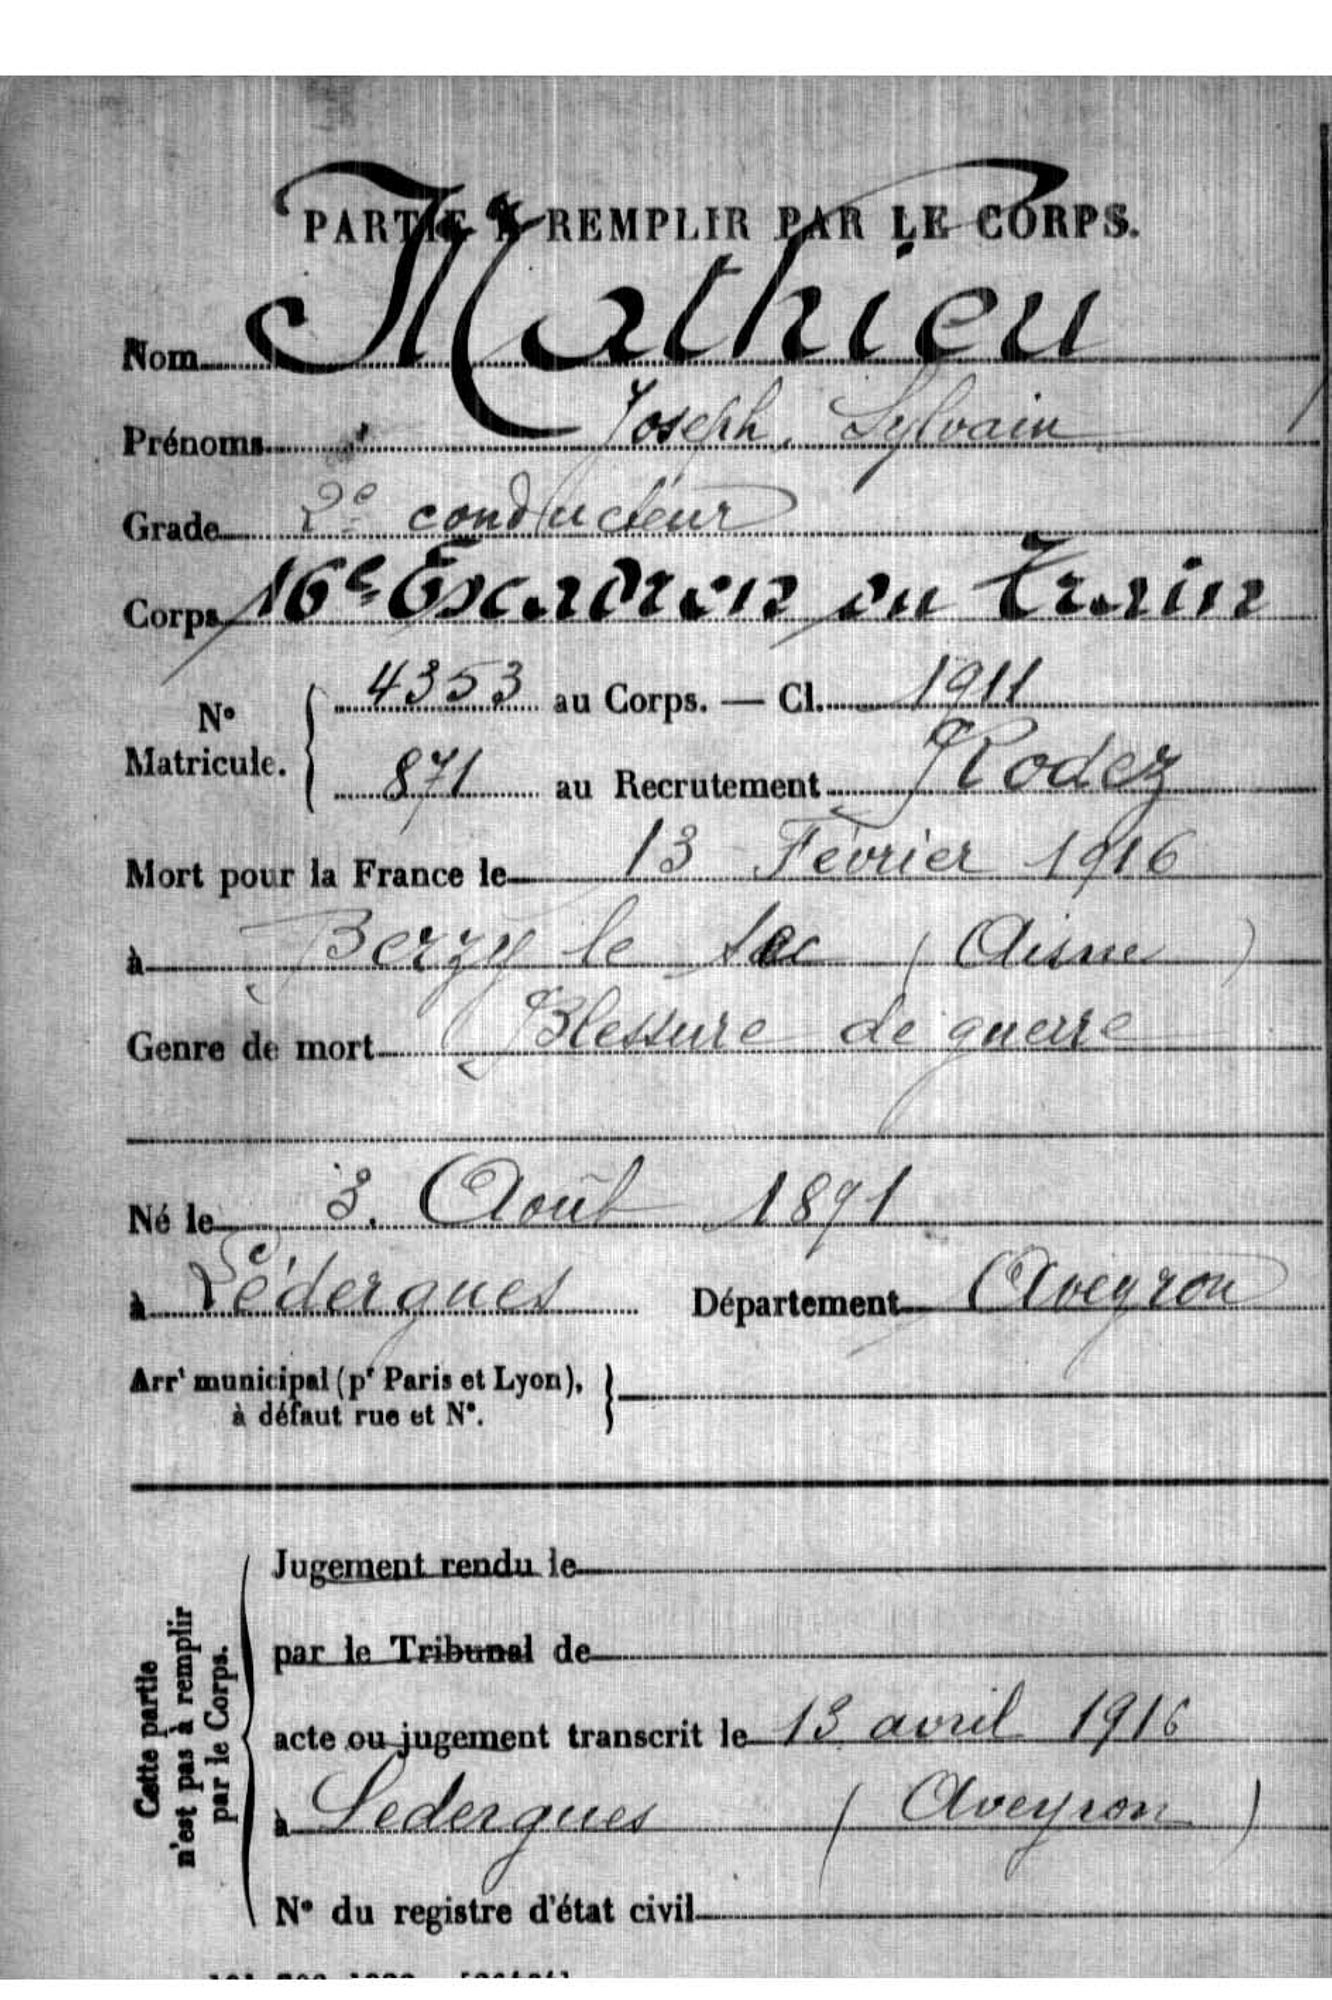 PARTIE À REMPLIR PAR LE CORPS.
Nom Mathieu
Prénoms Joseph, Sylvain
Grade 2e conducteur
Corps 16e Escadron du Train
No Matricule. { 4353 au Corps. — Cl. 1911
871 au Recrutement Rodez
Mort pour la France le 13 Février 1916
à Berzy le Sec (Aisne)
Genre de mort Blessure de guerre
Né le 3. Août 1891
à Lédergues Département Aveyron
Arrt municipal (pr Paris et Lyon),
à défaut rue et N°.
Cette partie
n'est pas à remplir
par le Corps.
Jugement rendu le
par le Tribunal de
acte ou jugement transcrit le 13 avril 1916
à Ledergues (Aveyron)
N° du registre d'état civil